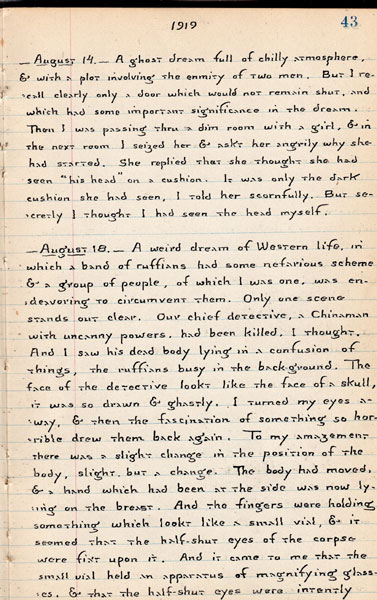 1919
43
— August 14. — A ghost dream full of chilly atmosphere,
& with a plot involving the enmity of two men. But I re-
call clearly only a door which would not remain shut, and
which had some important significance in the dream.
Then I was passing thru a dim room with a girl, & in
the next room I seized her & askt her angrily why she
had started. She replied that she thought she had
seen "his head" on a cushion. It was only the dark
cushion she had seen, I told her scornfully. But se-
cretly I thought I had seen the head myself.
— August 18. — A weird dream of Western life, in
which a band of ruffians had some nefarious scheme
& a group of people, of which I was one, was en-
deavoring to circumvent them. Only one scene
stands out clear. Our chief detective, a Chinaman
with uncanny powers, had been killed, I thought.
And I saw his dead body lying in a confusion of
things, the ruffians busy in the background. The
face of the detective lookt like the face of a skull,
it was so drawn & ghastly. I turned my eyes a-
way, & then the fascination of something so hor-
rible drew them back again. To my amazement
there was a slight change in the position of the
body, slight, but a change. The body had moved,
& a hand which had been at the side was now ly-
ing on the breast. And the fingers were holding
something which lookt like a small vial, & it
seemed that the half-shut eyes of the corpse
were fixt upon it. And it came to me that the
small vial held an apparatus of magnifying glass-
es, & that the half-shut eyes were intently